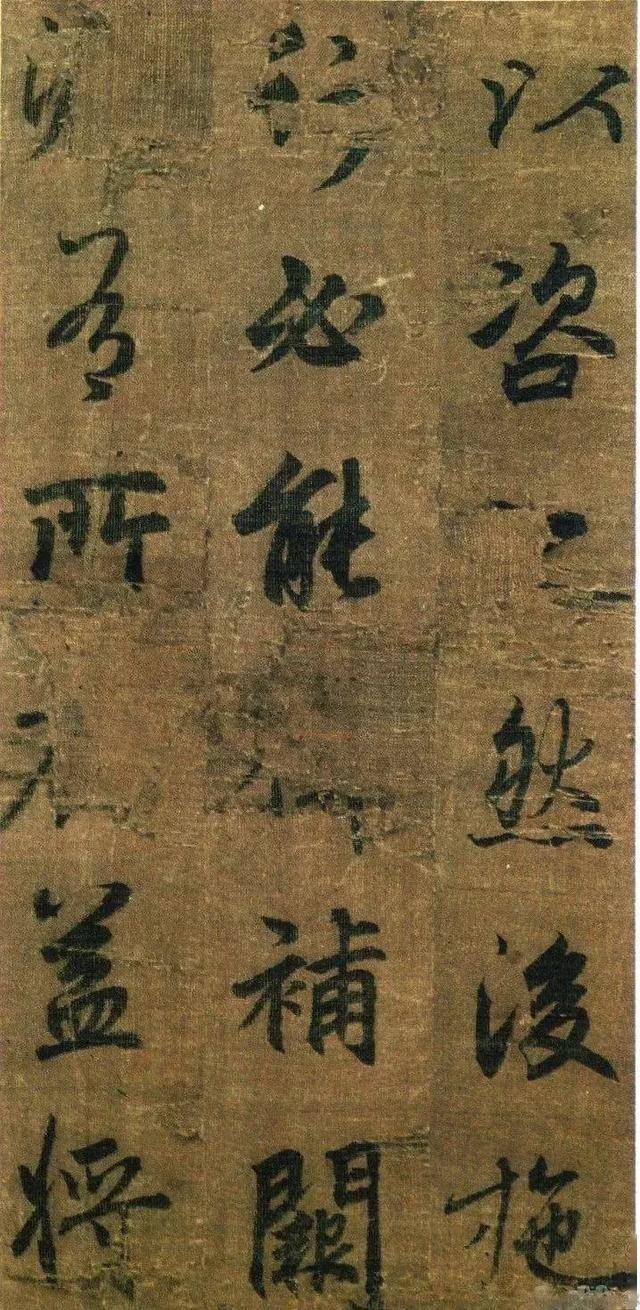 以咨然後施
行必能補闕
有所益將